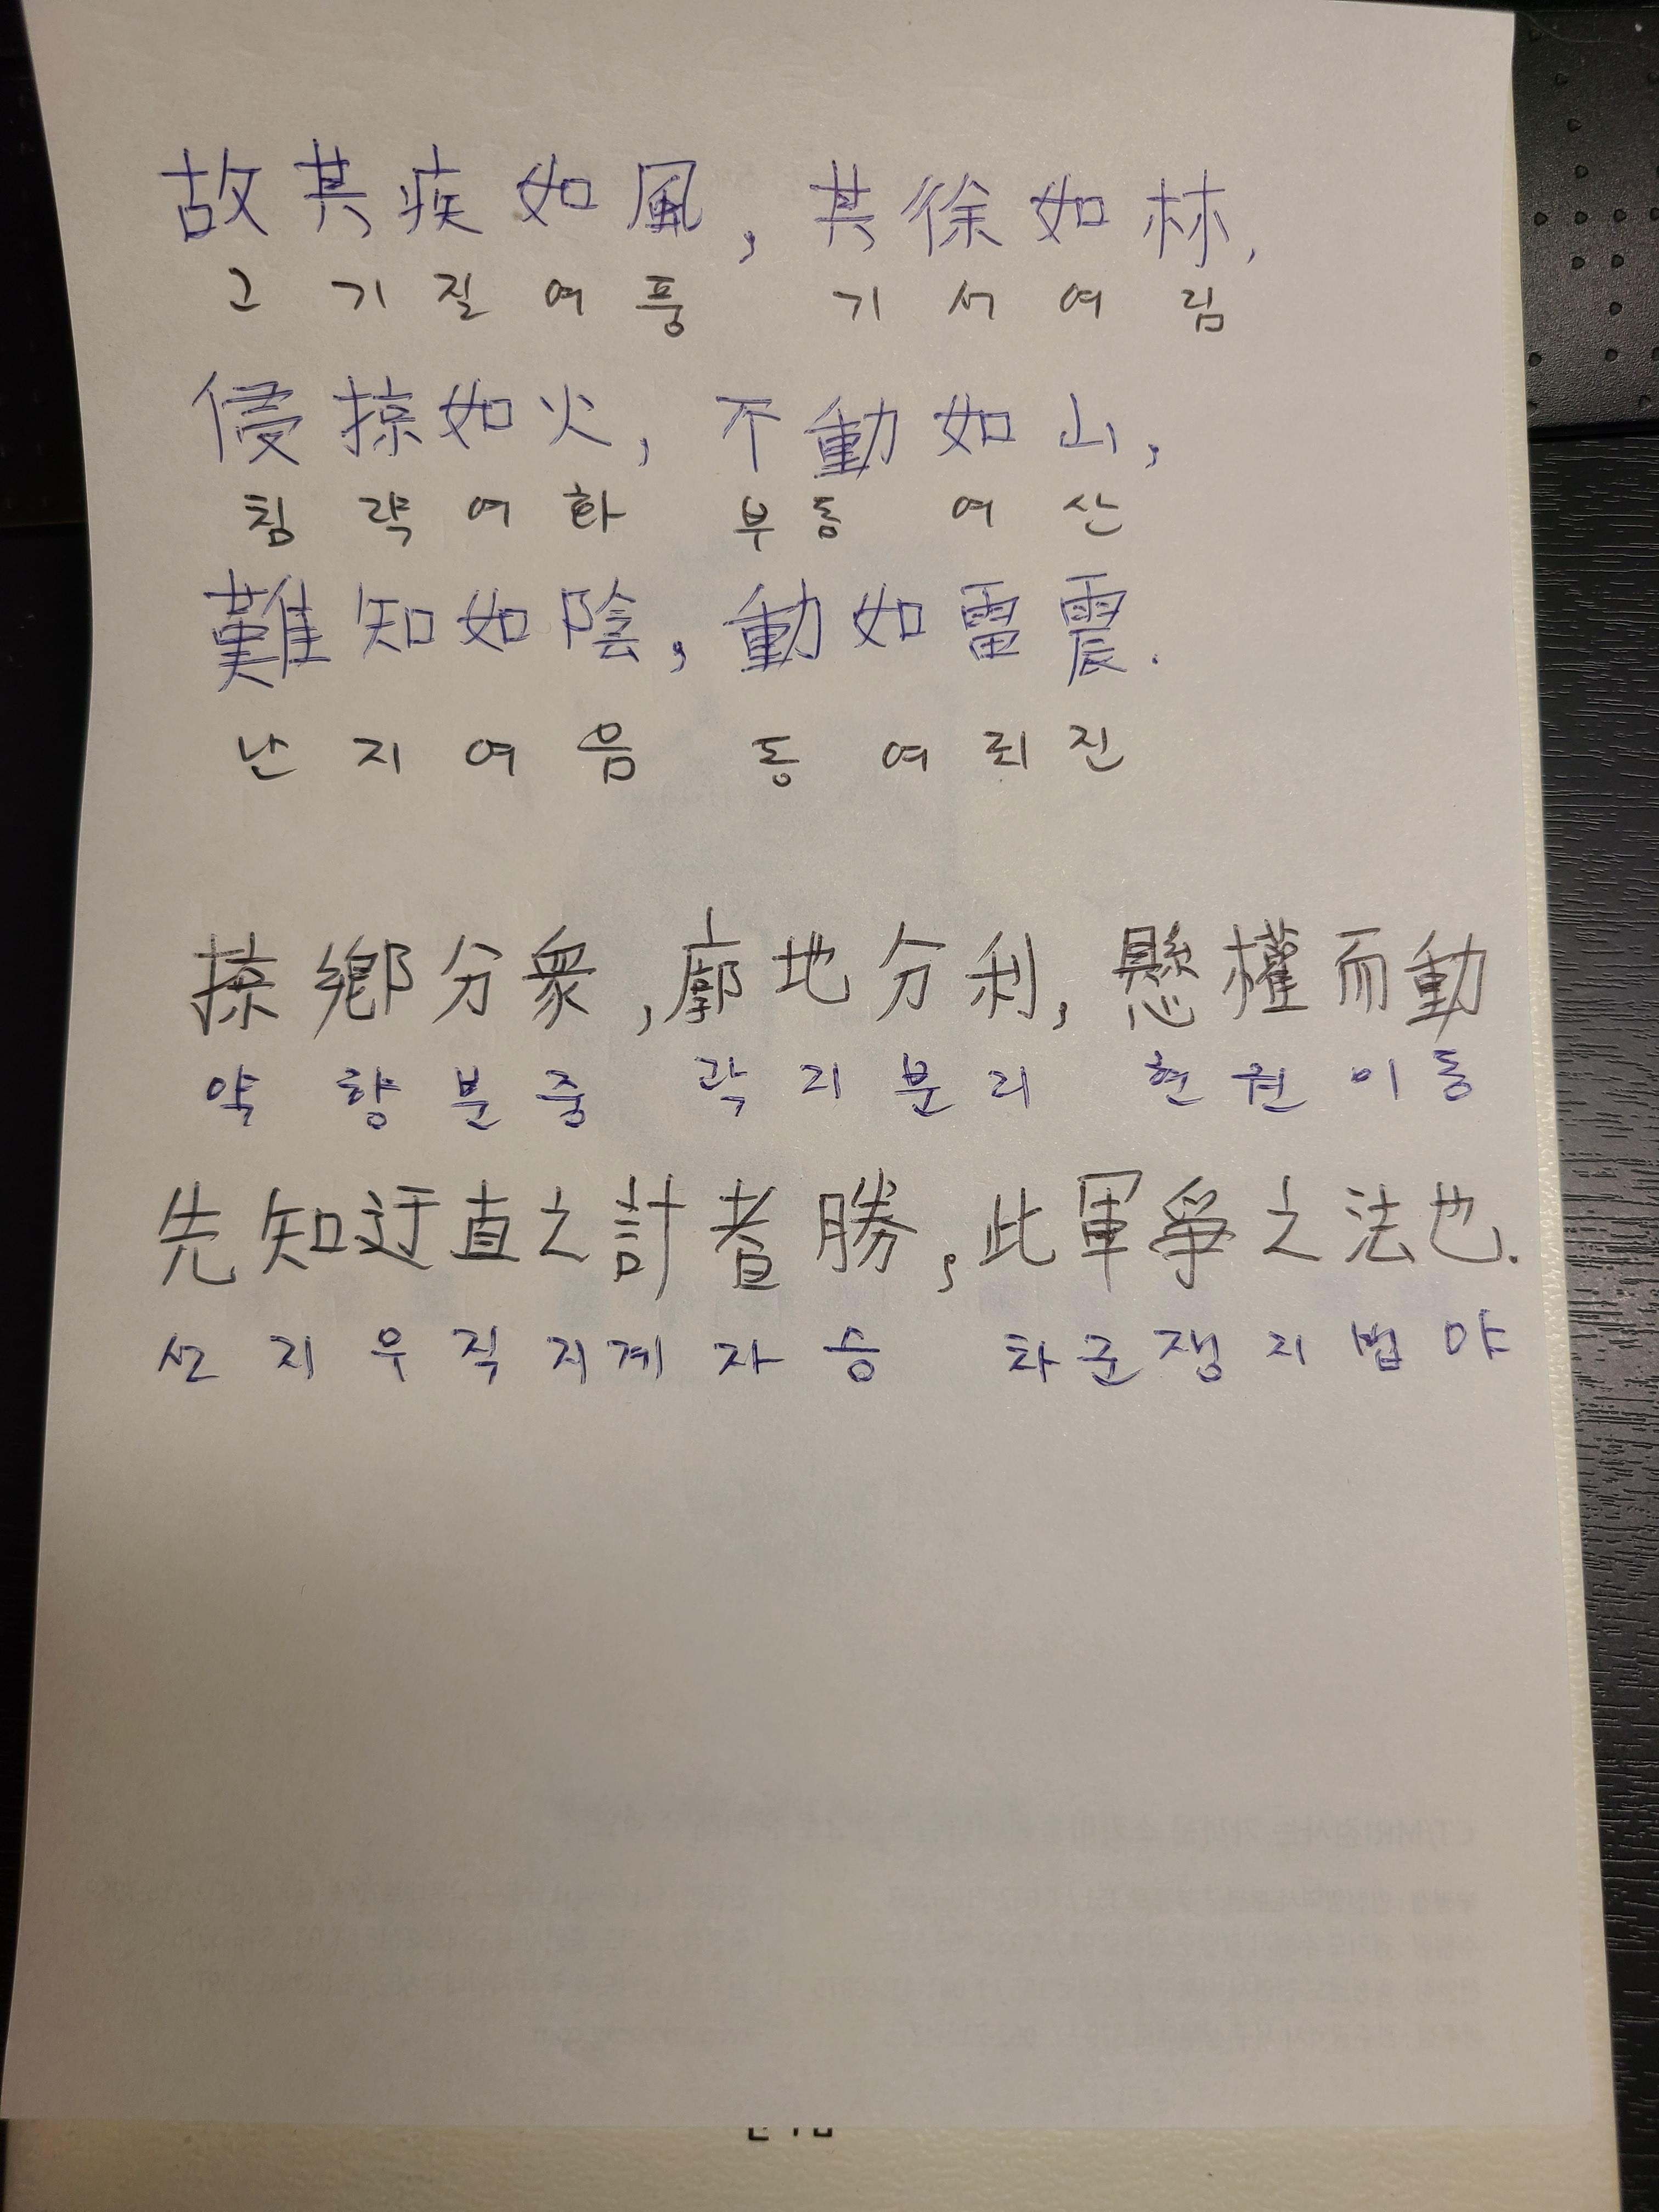 故其疾如風, 其徐如林,
고 기 질 여 풍 기 서 여 림
侵掠如火, 不動如山,
침 략 여 화 부 동 여 산
難知如陰, 動如雷震.
난 지 여 음 동 여 뢰 진
掠鄉分衆, 廓地分利, 懸權而動
약 향 분 중 곽 지 분 리 현 권 이 동
先知迂直之計者勝, 此軍爭之法也.
선 지 우 직 지 계 자 승 차 군 쟁 지 법 야